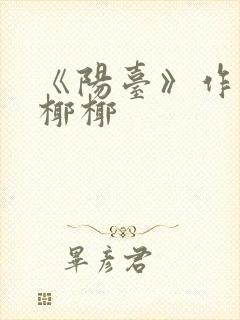 《陽臺》作
椰椰
畢彥君